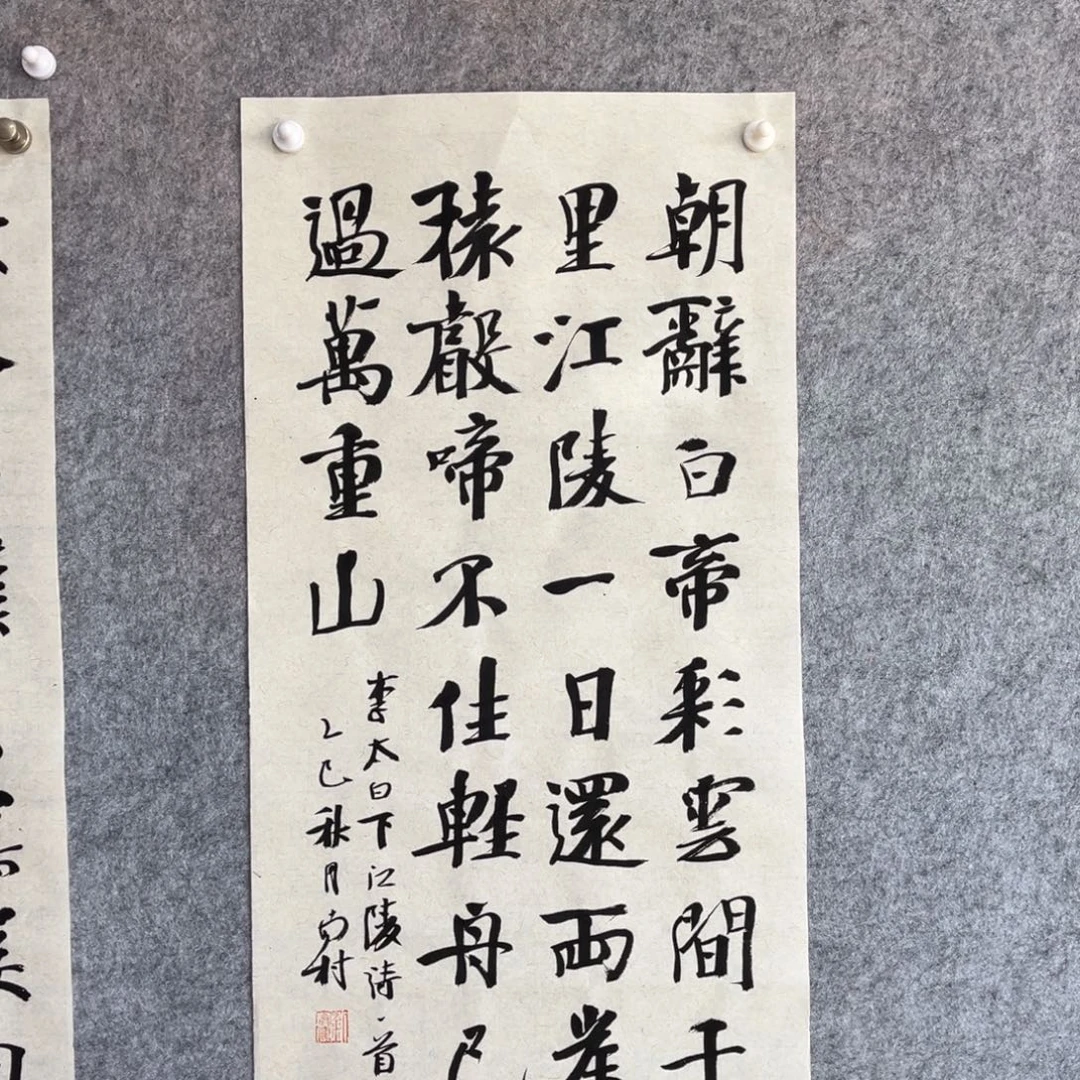 朝辭白帝彩雲間千
里江陵一日還兩岸
猿聲啼不佳輕舟已
過萬重山
李太白下江陵詩一首
乙巳秋月村